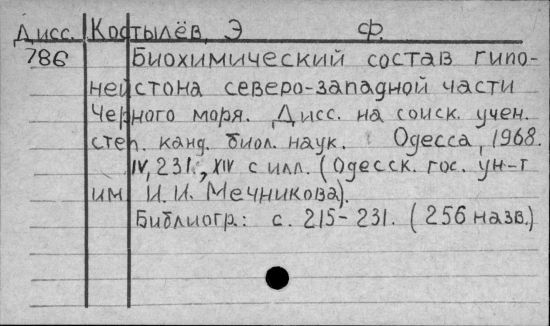 Дисс. Костылёв, Э Ф.
786 Биохимический состав гипо-
нейстона северо-западной части
Черного моря. Дисс. на соиск. учен.
степ. канд. биол. наук. Одесса, 1968.
IV, 231., XIV с илл. (Одесск. гос. ун-т
им И. И. Мечникова).
Библиогр.: с. 215-231. (256 назв.)